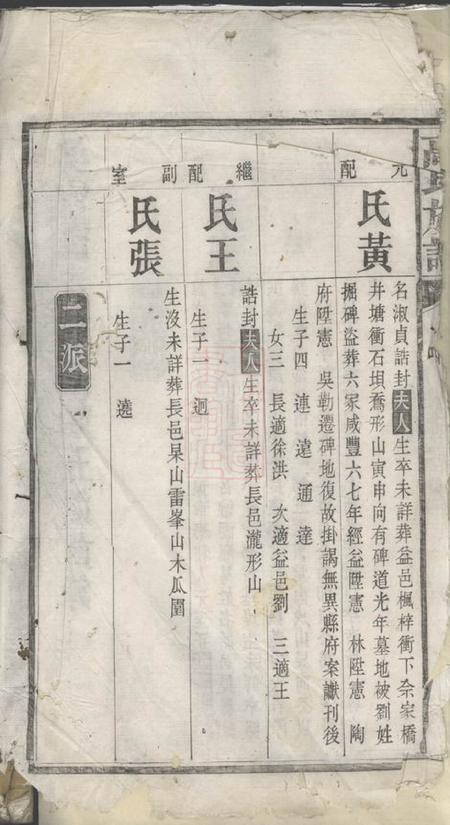 元配
黃氏
名淑貞誥封夫人生卒未詳葬益邑楓梓衝下奈家橋
井塘衝石垻鴌形山寅申向有碑道光年墓地被劉姓
掘碑盜葬六冢咸豐六七年經益陞憲 林陞憲 陶
府陞憲 吳勒遷碑地復故掛謁無異縣府案讞刊後
生子四 連 遠 通 達
女三 長適徐洪 次適益邑劉 三適王
繼配
王氏
誥封夫人生卒未詳葬長邑瀧形山
生子一 迥
副室
張氏
生沒未詳葬長邑杲山雷峯山木瓜園
生子一 遶
二派